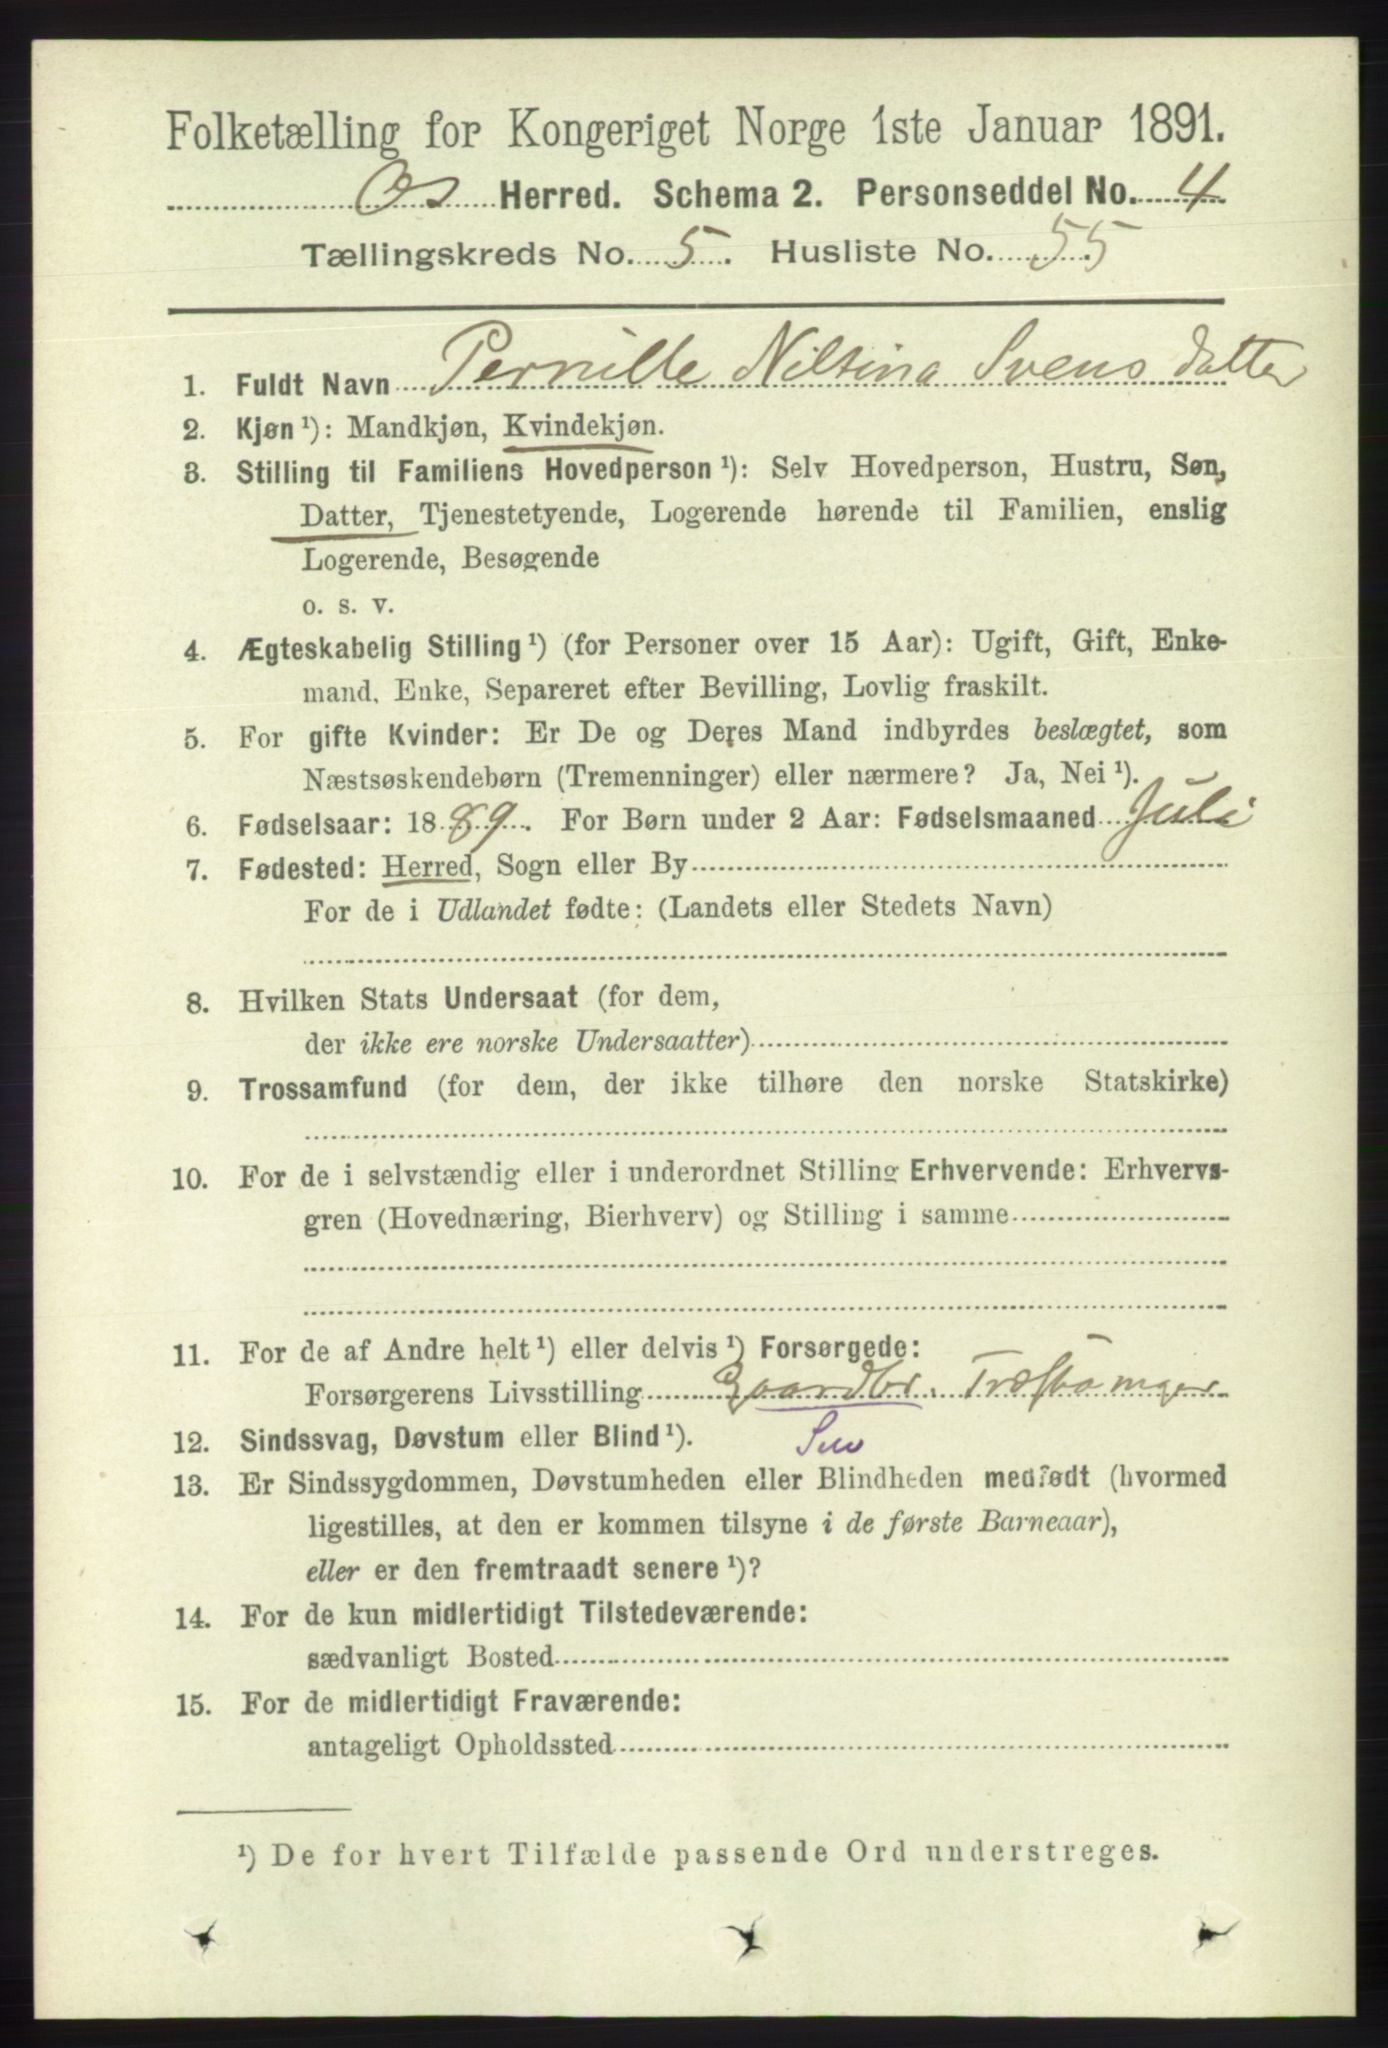 Folketælling for Kongeriget Norge 1ste Januar 1891.
Os Herred. Schema 2. Personseddel No. 4
Tællingskreds No. 5. Husliste No. 55
1. Fuldt Navn Pernille Niltina Svens datter
2. Kjøn ¹): Mandkjøn, Kvindekjøn.
3. Stilling til Familiens Hovedperson ¹): Selv Hovedperson, Hustru, Søn,
Datter, Tjenestetyende, Logerende hørende til Familien, enslig
Logerende, Besøgende
o. s. v.
4. Ægteskabelig Stilling ¹) (for Personer over 15 Aar): Ugift, Gift, Enke-
mand, Enke, Separeret efter Bevilling, Lovlig fraskilt.
5. For gifte Kvinder: Er De og Deres Mand indbyrdes beslægtet, som
Næstsøskendebørn (Tremenninger) eller nærmere? Ja, Nei ¹).
6. Fødselsaar: 1889. For Børn under 2 Aar: Fødselsmaaned Juli
7. Fødested: Herred, Sogn eller By
For de i Udlandet fødte: (Landets eller Stedets Navn)
8. Hvilken Stats Undersaat (for dem,
der ikke ere norske Undersaatter)
9. Trossamfund (for dem, der ikke tilhøre den norske Statskirke)
10. For de i selvstændig eller i underordnet Stilling Erhvervende: Erhvervs-
gren (Hovednæring, Bierhverv) og Stilling i samme
11. For de af Andre helt ¹) eller delvis ¹) Forsørgede:
Forsørgerens Livsstilling Gaardbr.
12. Sindssvag, Døvstum eller Blind ¹).
13. Er Sindssygdommen, Døvstumheden eller Blindheden medfødt (hvormed
ligestilles, at den er kommen tilsyne i de første Barneaar),
eller er den fremtraadt senere ¹)?
14. For de kun midlertidigt Tilstedeværende:
sædvanligt Bosted
15. For de midlertidigt Fraværende:
antageligt Opholdssted
¹) De for hvert Tilfælde passende Ord understreges.